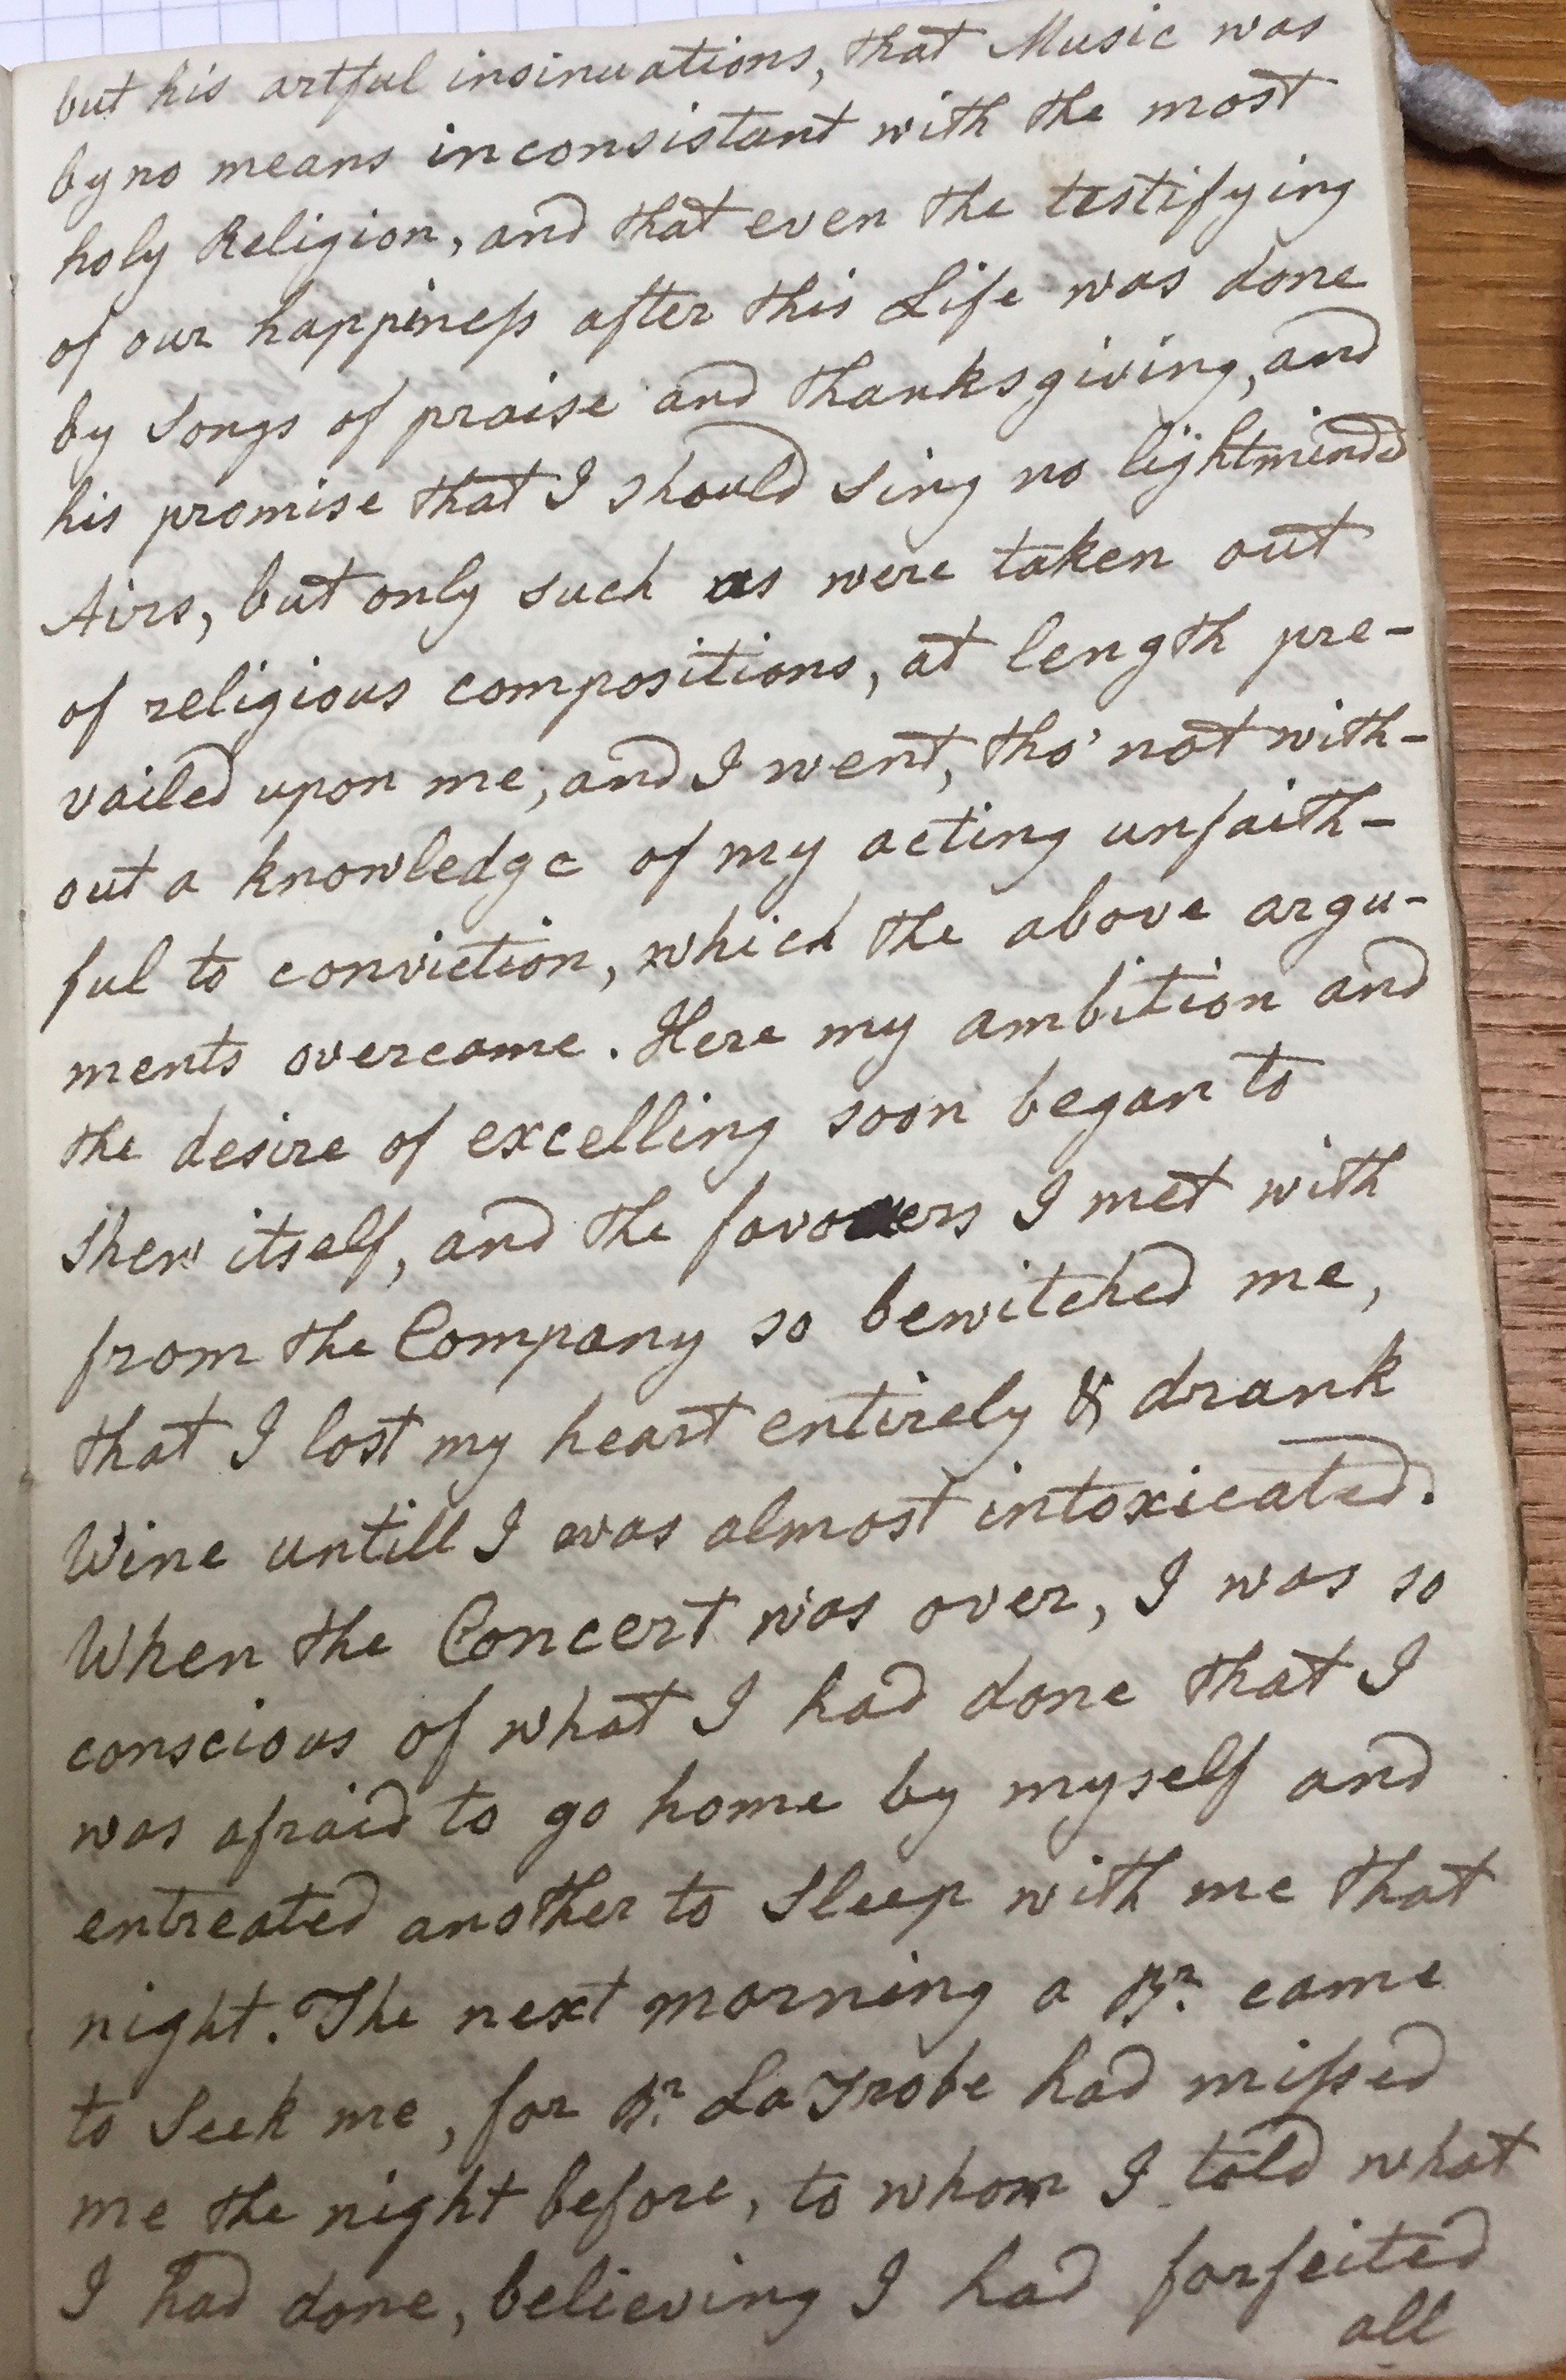 but his artful insinuations, that Music was
by no means inconsistant with the most
holy Religion, and that even the testifying
of our happiness after this Life was done
by Songs of praise and thanksgiving, and
his promise that I should sing no lightminded
Airs, but only such as were taken out
of religious compositions, at length pre-
vailed upon me; and I went, tho' not with-
out a knowledge of my acting unfaith-
ful to conviction, which the above argu-
ments overcame. Here my ambition and
the desire of excelling soon began to
shew itself, and the favowers I met with
from the Company so bewitched me,
that I lost my heart entirely & drank
Wine untill I was almost intoxicated.
When the Concert was over, I was so
conscious of what I had done that I
was afraid to go home by myself and
entreated another to Sleep with me that
night. The next morning a Br. came
to Seek me, for Br. La Trobe had missed
me the night before, to whom I told what
I had done, believing I had forfeited
all